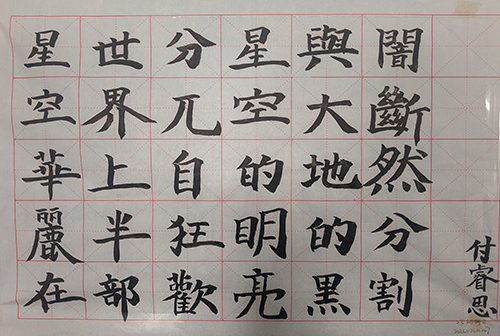 星空華麗在
世界上半部
分兀自狂歡
星空的明亮
與大地的黑
闇斷然分割
付睿思